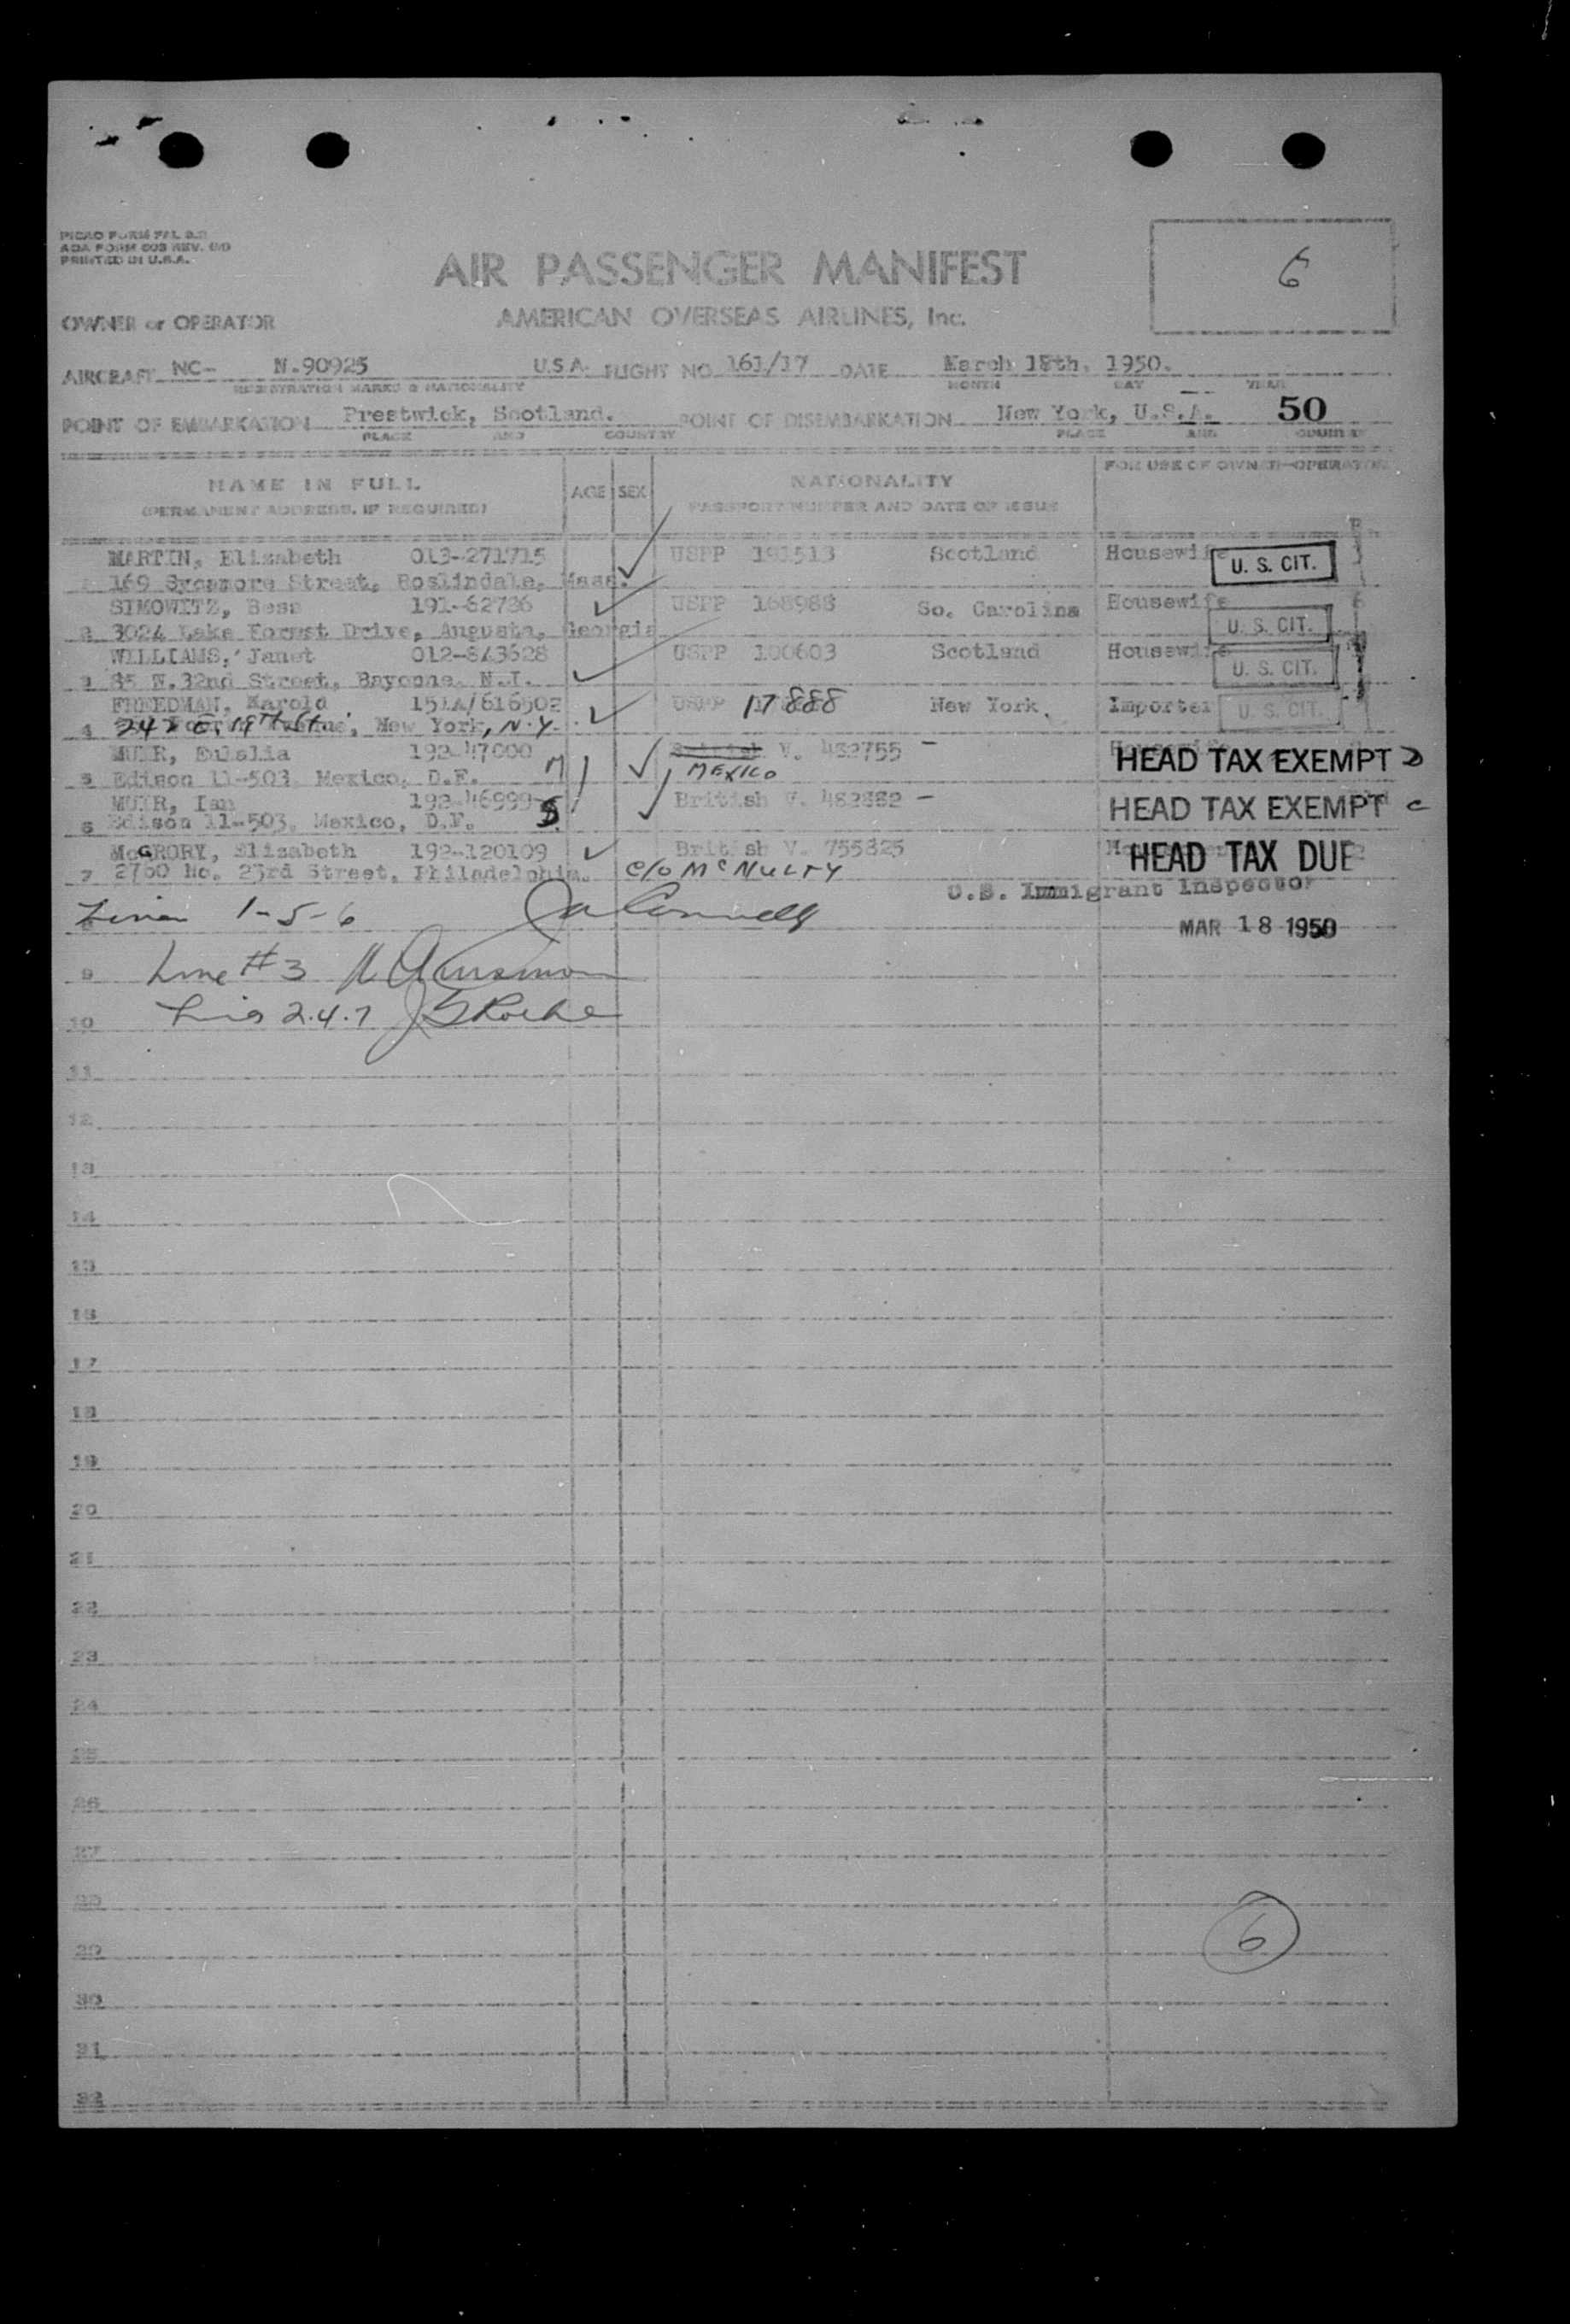 PRINTED IN U.S.A.
AIR PASSENGER MANIFEST
6
OWNER or OPERATOR
AMERICAN OVERSEAS AIRLINES, Inc.
AIRCRAFT NC- N.90925 U.S.A. FLIGHT NO. 161/17 DATE March 18th, 1950.
REGISTRATION MARKS & NATIONALITY MONTH DAY YEAR
POINT OF EMBARKATION Prestwick, Scotland. POINT OF DISEMBARKATION New York, U.S.A. 50
PLACE AND COUNTRY PLACE AND COUNTRY
NAME IN FULL AGE SEX NATIONALITY FOR USE OF OWNER-OPERATOR
(PERMANENT ADDRESS, IF REQUIRED) PASSPORT NUMBER AND DATE OF ISSUE
MARTIN, Elizabeth 013-271715 USPP 191513 Scotland Housewife U. S. CIT.
169 Sycamore Street, Roslindale, Mass.
SIMOWITZ, Bess 191-62726 USPP 168988 So. Carolina Housewife
2 3024 Lake Forest Drive, Augusta, Georgia U. S. CIT.
WILLIAMS, Janet 012-843628 USPP 100603 Scotland Housewife
3 85 W.32nd Street, Bayonne, N.J. U. S. CIT.
FREEDMAN, Harold 151A/616502 USPP 17888 New York. Importer U. S. CIT.
4 242 E. 19th St. New York, N.Y.
MUIR, Eulalia 192-47000 British V. 482755 - HEAD TAX EXEMPT
5 Edison 11-503, Mexico, D.F. M MEXICO
MUIR, Ian 192-46999 British V. 482882 - HEAD TAX EXEMPT c
6 Edison 11-503, Mexico, D.F. S.
McGRORY, Elizabeth 192-120109 British V. 755825 HEAD TAX DUE
7 2760 No. 23rd Street, Philadelphia. c/o McNULTY
U.S. Immigrant Inspector
1-5-6
MAR 18 1950
9 Line #3
10 2.4.7 J Roche
11
12
13
14
15
16
17
18
19
20
21
22
23
24
25
26
27
28
29
6
30
31
32